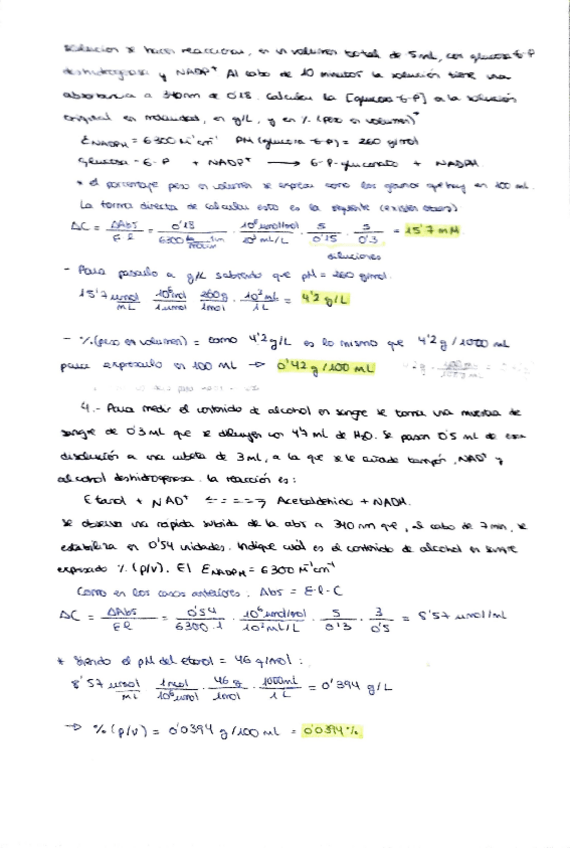 solución se hacen reaccionar, en un volumen total de 5 mL, con glucosa-6-P
deshidrogenasa y NADP+ Al cabo de 10 minutos la solución tiene una
absorbancia a 340nm de 0'18. Calcular la [glucosa 6-P] a la solución
original en molaridad, en g/L, y en % (peso en volumen)*
ENADPH = 6300 M-1cm-1 PM (glucosa 6-P) = 260 g/mol
Glucosa-6-P + NADP+ → 6-P-gluconato + NADPH
* el porcentaje peso en volumen se expresa como los gramos que hay en 100 mL.
La forma directa de calcular esto es la siguiente (existen otras)
ΔC = ΔAbs / E·l = 0'18 / 6300 · 10^6 umol/mol / 10^3 mL/L · 5 / 0'15 · 5 / 0'3 = 15'7 mM
diluciones
- Para pasarlo a g/L sabiendo que pM = 260 g/mol.
15'7 umol/mL · mol / 1 umol · 260g / 1mol · 10^3 mL / 1L = 4'2 g/L
- % (peso en volumen) = como 4'2 g/L es lo mismo que 4'2 g / 1000 mL
para expresarlo en 100 mL → 0'42 g / 100 mL
4.- Para medir el contenido de alcohol en sangre se toma una muestra de
sangre de 0'3 mL que se diluyen con 4'7 mL de H2O. Se pasan 0'5 mL de esa
disolución a una cubeta de 3 mL, a la que se le añade tampón, NAD+ y
alcohol deshidrogenasa. La reacción es:
Etanol + NAD+ <====> Acetaldehído + NADH.
Se observa una rápida subida de la abs a 340 nm que, al cabo de 7 min, se
estabiliza en 0'54 unidades. Indique cuál es el contenido de alcohol en sangre
expresado % (p/v). El ENADPH = 6300 M-1cm-1
Como en los casos anteriores: Abs = E·l·C
ΔC = ΔAbs / E·l = 0'54 / 6300·1 · 10^6 umol/mol / 10^3 mL/L · 5 / 0'3 · 3 / 0'5 = 8'57 umol/mL
* Siendo el pM del etanol = 46 g/mol:
8'57 umol/mL · 1mol / 10^6 umol · 46 g / 1mol · 1000ml / 1L = 0'394 g/L
→ % (p/v) = 0'0394 g/100 mL = 0'0394%